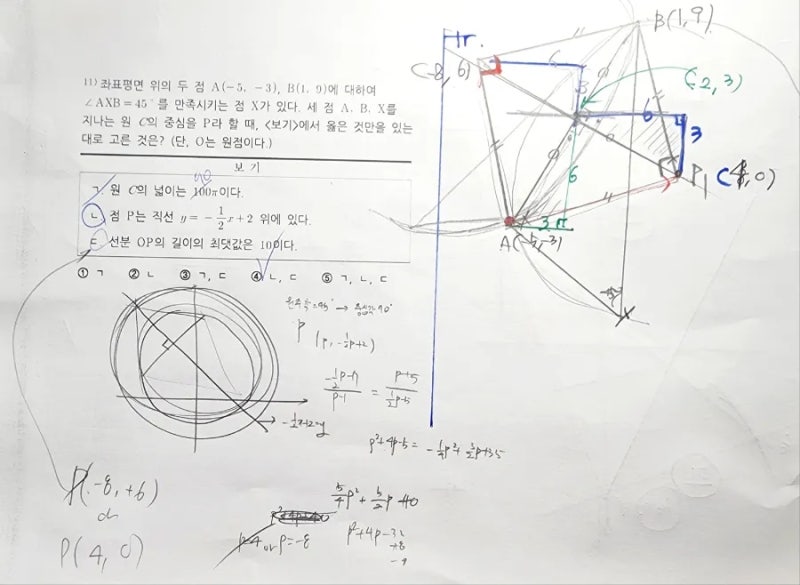 11) 좌표평면 위의 두 점 A(-5, -3), B(1, 9)에 대하여
∠AXB=45°를 만족시키는 점 X가 있다. 세 점 A, B, X를
지나는 원 C의 중심을 P라 할 때, <보기>에서 옳은 것만을 있는
대로 고른 것은? (단, O는 원점이다.)
보 기
90
ㄱ. 원 C의 넓이는 100π이다.
ㄴ. 점 P는 직선 y=-1/2x+2 위에 있다.
ㄷ. 선분 OP의 길이의 최댓값은 10이다.
① ㄱ ② ㄴ ③ ㄱ, ㄷ ④ ㄴ, ㄷ ⑤ ㄱ, ㄴ, ㄷ
B(1, 9)
Hr.
(-8, 6)
6
3
(-2, 3)
6
3
6
P1 (4, 0)
3
A(-5, -3)
X
원주각=45° → 중심각 90°
P
(P, -1/2P+2)
P+5
P-1
-1/2x+2=y
P²+4P-5 = -1/4P²+3/2P+35
5/4P²+5/2P-40
P=-8
P²+4P-32
+8
-4
P(-8, +6)
or
P(4, 0)